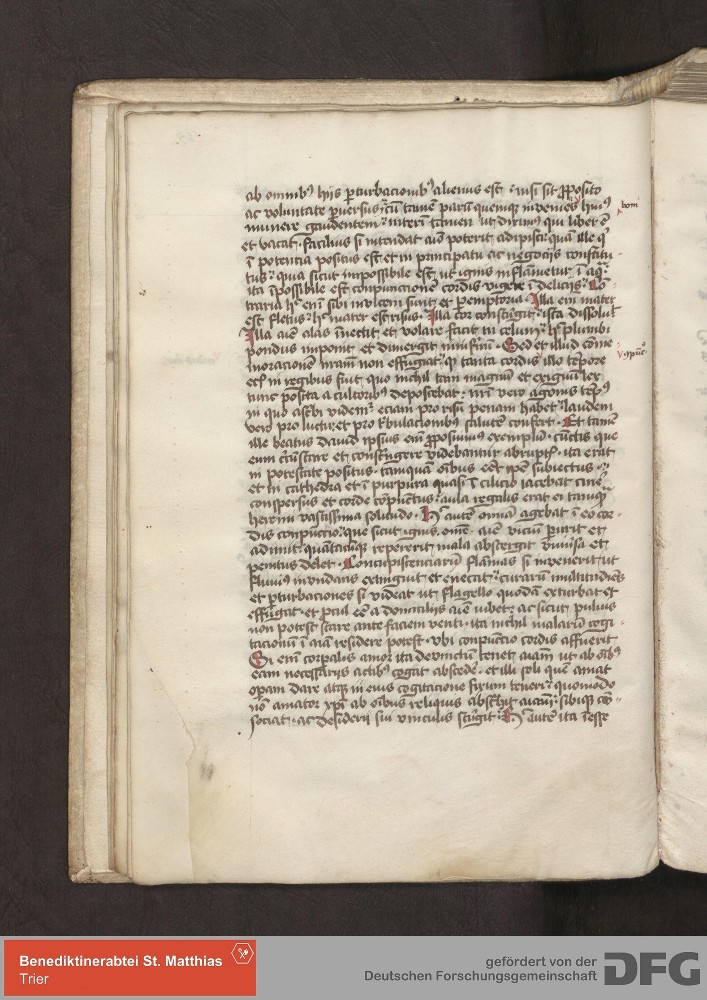 ab omnibꝰ hijs ꝑturbacionibꝰ alienus est nisi sit ꝓposito
ac voluntate ꝑuersus cū tamē parū quemqꝫ invenies huiꝰ
boni
munere gaudentem interī tamen ut diximꝰ qui liber ē
et vacat facilius si intendat aīo poterit adipisci quā ille qͥ
ī potencia positus est et in principatu ac negocijs constitu
tus quia sicut impossibile est ut ignis inflāmetur ī aqͣ
ita īpossibile est conpunccionē cordis vigere ī delicijs Cō
traria hͦ enī sibi invicem sunt et ꝑemptoria Illa enī mater
est fletus hͦ mater est risus Illa cor constringit ista dissoluit
Illa aīe alas īnectit et volare facit in celum hͦ plumbi
pondus imponit et dimergit in infernū Sed et illud cōme
moracionē nr̄am non effugiat qͥ tanta cordis illo tēpore
etsi in regibus fuit quo nichil tam magnū et exigniū lex
tunc posita a cultoribꝰ deposcebat nr̄i vero agonis tēpꝰ
in quo asc̄bi videmꝰ eciam pro risu penam habet laudem
vero pro luctu et pro tribulacionibꝰ salutē confert Et tamē
ille beatus dauid ipsius enī ꝓposuimꝰ exemplū cūctis que
eum cͥcūstare et constringere videbantur abruptis ita erat
in potestate positus tamquā oībus eēt ip̄e subiectus
et in cathedra et ī purpura quasi ī cilicio iacebat cinē
conspersus et corde cōpūctus aula regalis erat ei tamqͣ
heremi vastissima solitudo Hͦ autē omnia agebat ī eo cor
dis conpūctio que sicut ignis omē aīe viciū ꝑurit et
adimit quātacūqꝫ repererit mala abstergit vniuersa et
penitus delet Concupiscenciarū flāmas si invenerit ut
fluuiꝰ inundans extinguit et enecat curarū multitudinēs
et ꝑturbaciones si videat ut flagello quodā exturbat et
effugat et procul eē a domicilijs aīe iubet ac sicut puluis
non potest stare ante faciem venti ita nichil malarū cogi
tacionū ī aīa residere potest vbi conpūctio cordis affuerit
Si enī corꝑalis amor ita deuinctū tenet aīam ut ab oībꝰ
eam necessarijs actibꝰ cogat abscedē et illi soli quē amat
opam dare atqꝫ in eius cogitacione fixum teneri quomodo
nō amator xp̄i ab oībus reliquis abstͣhit aīam sibiqꝫ cō
sociat ac desiderij sui vinculis stͥngit Hͦ autē ita ī esse
Benediktinerabtei St. Matthias
Trier
gefördert von der
Deutschen Forschungsgemeinschaft
DFG